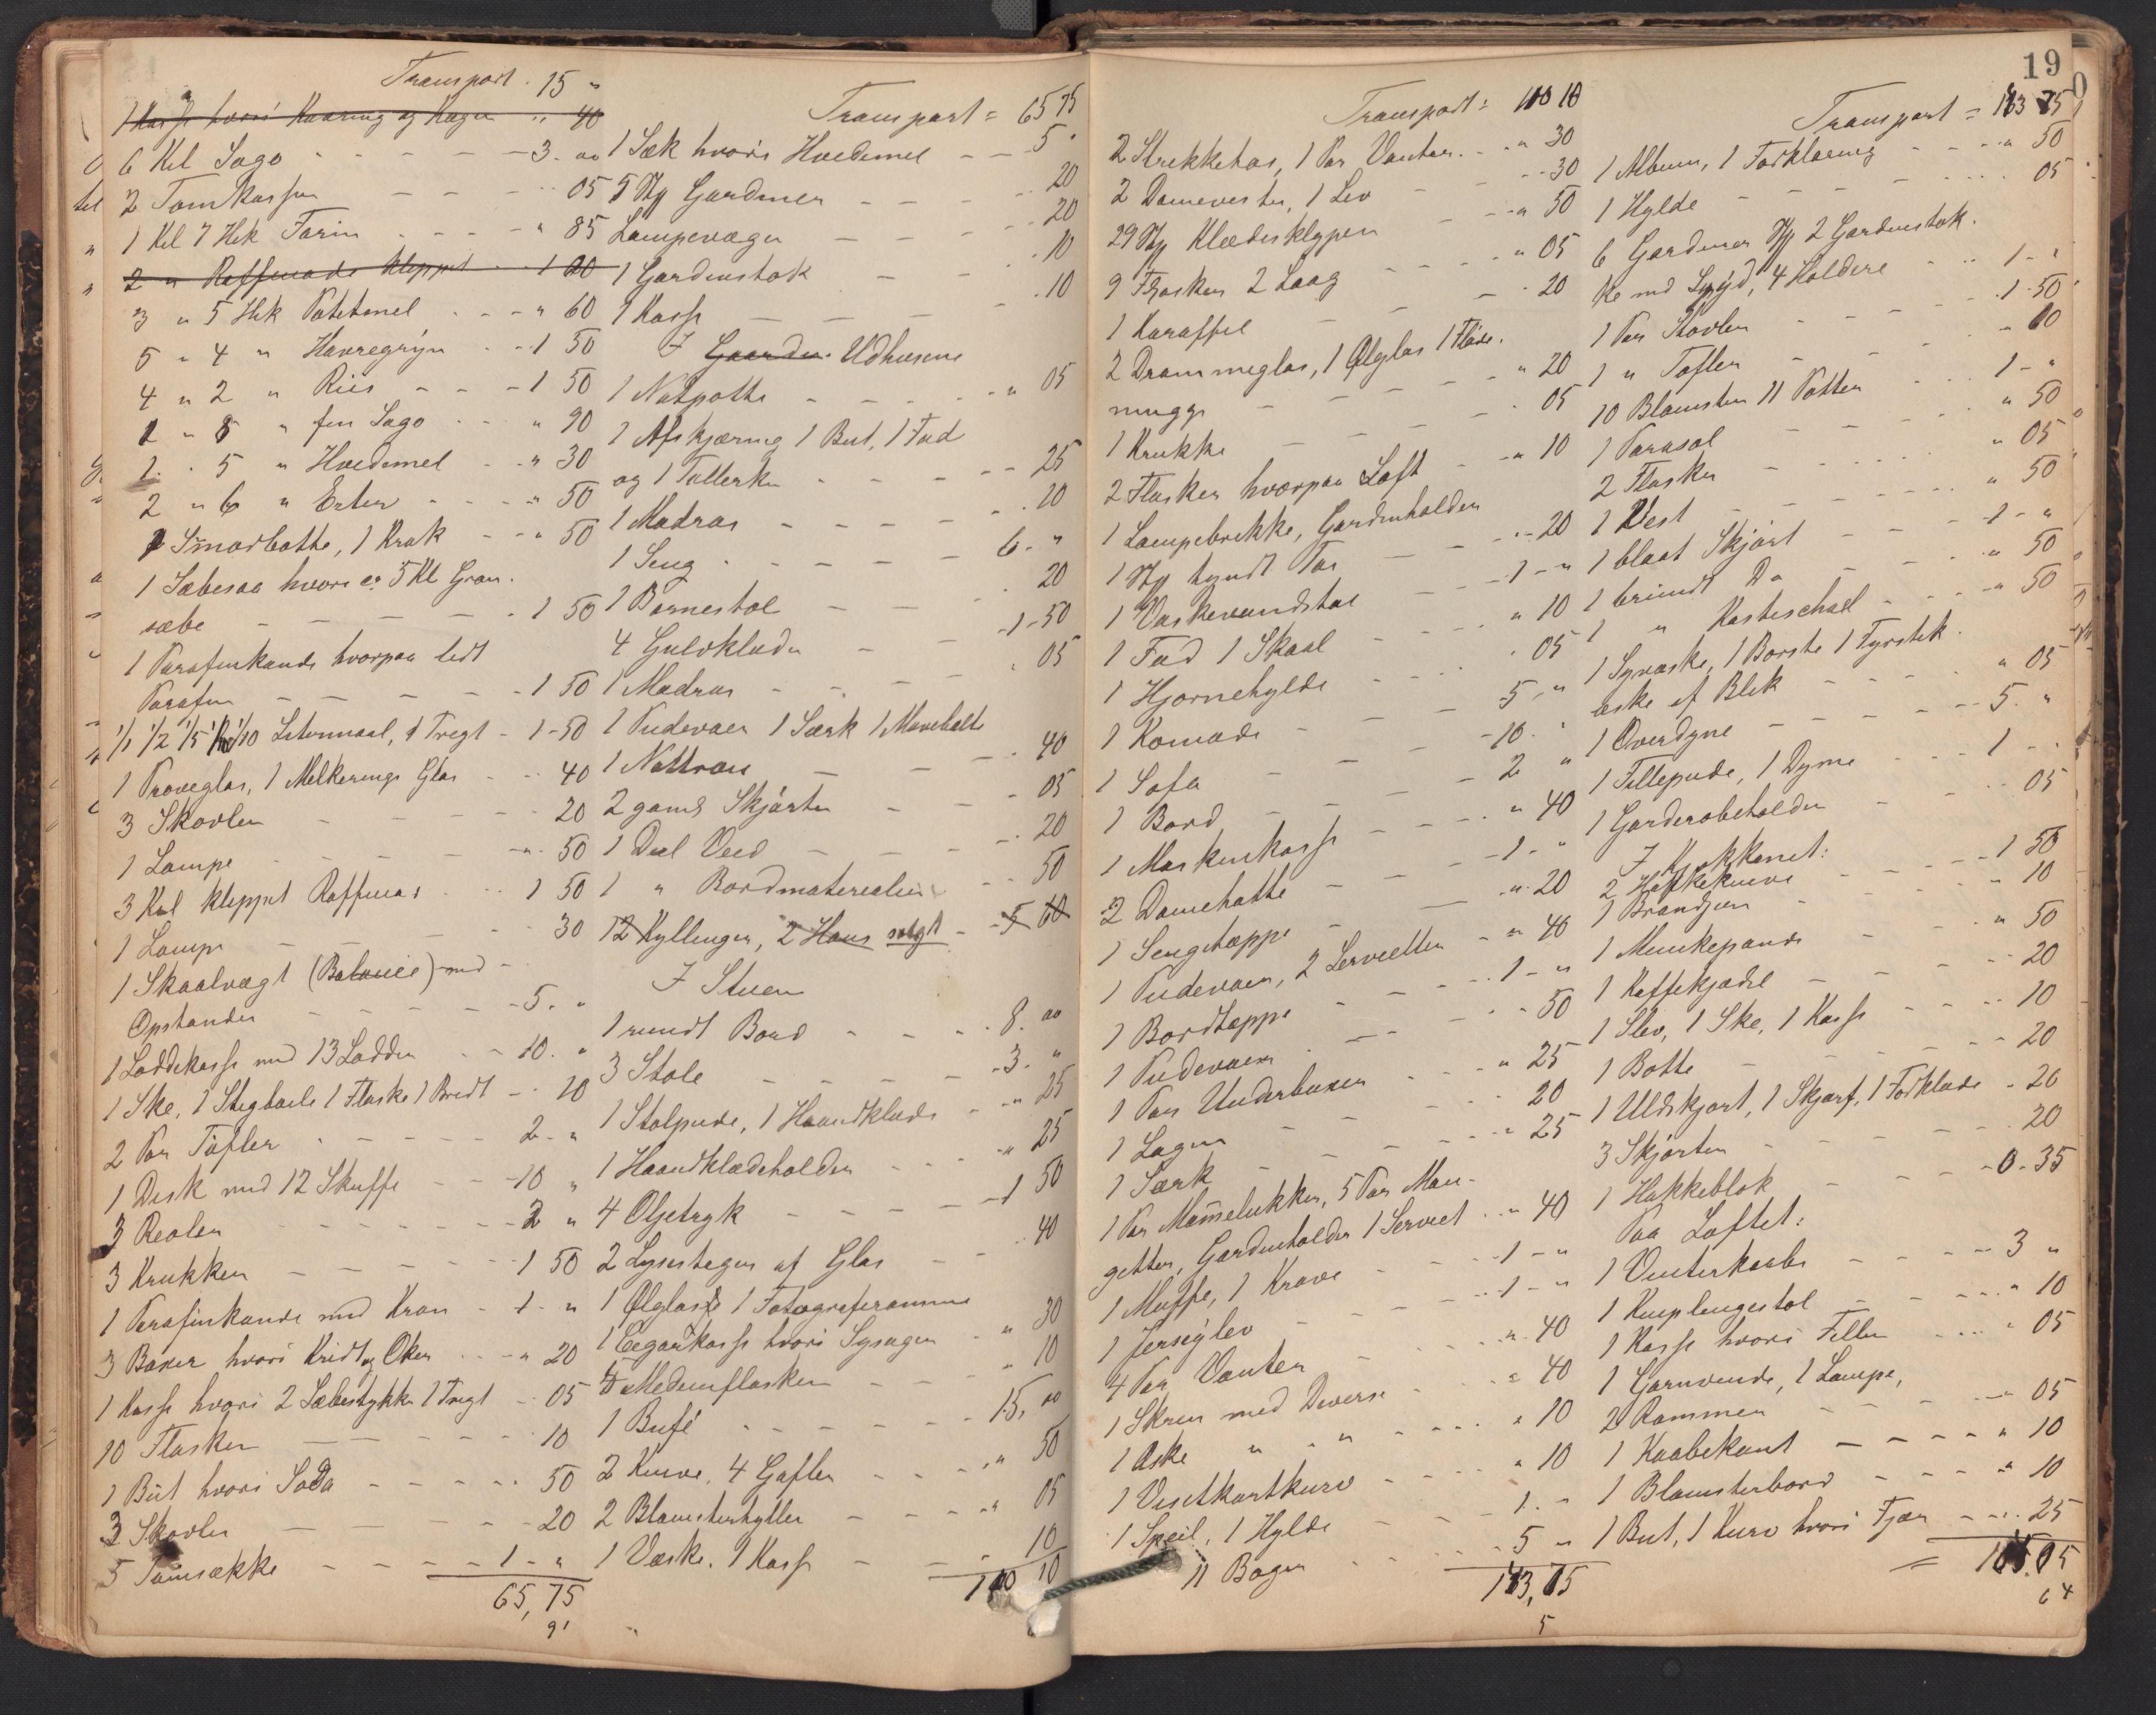 Transport . 15 "
1 Kasse hvori Kavring og Kager " 40
6 Kil Sago - - - - - 3. 00
2 Tomkasser - - - 05
1 Kil 7 Hek Farin - - - " 85
2 " Raffinade kleppet - 1 20
3 " 5 Hek Potetmel - - - " 60
5 " 4 " Havregryn - - 1 50
4 " 2 " Riis - - - 1 50
1 " 8 " fin Sago - - " 90
1 " 5 " Hvedemel - - " 30
2 " 6 " Erter - - - " 50
1 Smørbøtte, 1 Krak - - " 50
1 Sæbesaa hvori er 5 Kl Grøn-
sæbe - - - - - 1 50
1 Parafinkande hvorpaa lidt
Parafin - - - - - 1 50
1/1 1/2 1/5 1/10 Litermaal, 1 Tragt - 1 - 50
1 Prøveglas, 1 Melkerings Glas - - 40
3 Skovler - - - - 20
1 Lampe - - - - - " 50
3 Kil kleppet Raffinad - - - 1 50
1 Lampe - - - - - 30
1 Skaalvægt (Balance) med -
Opstander - - - - - 5. "
1 Loddekasse med 13 Lodder - - 10. "
1 Ske, 1 Stegbøile 1 Flaske 1 Bredt - 20
2 Par Tøfler - - - - - 2 - "
1 Disk med 12 Skuffe - - 10 "
3 Reoler - - - - - - 2 "
3 Krukker - - - - - 1 50
1 Parafinkande med Kran - 1 - "
3 Baxer hvori Kridt og Oker - - " 20
1 Kasse hvori 2 Sæbestykker 1 Tragt - 05
10 Flasker - - - - - 10
1 But hvori Soda - - - - 50
3 Skovler - - - - - 20
5 Tomsække - - - - 1 - "
65,75
Transport = 65 75
1 Sæk hvori Hvedemel - - 5 "
5 Stk Gardiner - - - - 20
Lampevæger - - - - 20
1 Gardinstok - - - 10
1 Kasse - - - - 10
I Gaarden Udhusene
1 Natpotte - - - - " 05
1 Afskjæring 1 But, 1 Fad
og 1 Tallerken - - - - 25
1 Madras - - - - - 20
1 Seng - - - - - 6 - "
1 Barnestol - - - - 20
4 Gulvklæder - - - 1 - 50
1 Madras - - - - 05
1 Pudevaer 1 Særk 1 Mavebelte
1 Nattrøie - - - - 40
2 gamle Skjørter - - - 05
1 Deel Ved - - - - 20
1 " Bordmaterialier - - 50
12 Kyllinger, 2 Høns solgt - - 5 60
I Stuen
1 rundt Bord - - - - 8. 00
3 Stole - - - - - - 3. "
1 Stolpude, 1 Haandklæde - - " 25
1 Haandklædeholder - - - " 25
4 Oljetryk - - - - - 1 50
2 Lysestager af Glas - - - 40
1 Ølglas 1 Fotograferamme
1 Cigarkasse hvori Sysager - " 30
5 Medicinflasker - - - " 10
1 Bufé - - - - - - 15. 00
2 Kurve, 4 Gafler - - - " 50
2 Blomsterhylder - - - " 05
1 Væske. 1 Kasse - - - 10
110 10
19
Transport = 110 10
2 Strekketøs, 1 Par Vanter - - " 30
2 Damevester, 1 Liv - - - - 30
29 Stk Klædesklyper - - - " 50
9 Flasker 2 Laag - - - " 05
1 Karaffel - - - - 20
2 Drammeglas, 1 Ølglas 1 Fløde-
mugge - - - - - " 20
1 Krukke - - - - - 05
2 Flasker hvorpaa Saft - - " 10
1 Lampebrikke, Gardinholder
1 Stk tyndt Tøi - - - - - 20
1 Vaskevandstol - - - 1 - "
1 Fad 1 Skaal - - - - " 10
1 Hjørnehylde - - - - 05
1 Komode - - - - 5 - "
1 Sofa - - - - - 10 - "
1 Bord - - - - - 2 "
1 Maskinkasse - - - - " 40
2 Damehatte - - - - 1 - "
1 Sengetæppe - - - " 20
1 Pudevaer, 2 Servietter - - " 40
1 Bordtæppe - - - - 1 - "
1 Pudevaer - - - - 50
1 Par Underbuxer - - - " 25
1 Lagen - - - - - 20
1 Særk - - - - - " 25
1 Par Mammelukker, 5 Par Man-
getter, Gardinholder 1 Serviet - " 40
1 Muffe, 1 Krave - - - 1 - "
1 Jerseyliv - - - - 1 - "
4 Par Vanter - - - " 40
1 Skrin med Diverse - - " 40
1 Æske " " - - - " 10
1 Visitkortkurv - - - - " 10
1 Speil, 1 Hylde - - - 1. "
11 Bøger - - - - 5 "
Transport =
1 Album, 1 Forklæring - - - " 50
1 Hylde - - - - - - 05
6 Gardiner Stk 2 Gardinstok-
ke med Spyd, 4 Holdere - - 1 - "
1 Par Støvler - - - - 1 - 50
1 " Tøfler - - - - "
10 Blomster 11 Potter - - 1 - "
1 Parasol - - - - " 50
2 Flasker - - - - - " 05
1 Vest - - - - - " 50
1 blaat Skjørt - - - 1 - "
1 brunt Do - - - - " 50
1 " Kasteschal - - - " 50
1 Syæske, 1 Børste 1 Fyrstik-
æske af Blik - - - - " 05
1 Overdyne - - - - 5. "
1 Fillepude, 1 Dyne - - - 1 - "
1 Garderobeholder - - - 05
I Kjøkkenet:
2 Hakkeknive - - - - 1 50
1 Brandjern - - - - " 10
1 Munkepande - - - " 50
1 Kaffekjædel - - - - 20
1 Slev, 1 Ske, 1 Kasse - - - 10
1 Bøtte - - - - - 20
1 Uldskjørt, 1 Skjærf, 1 Forklæde - 20
3 Skjørter - - - - - 20
1 Hakkeblok - - - - 0 - 35
Paa Loftet:
1 Vinterkaabe - - - - 3 "
1 Kniplingestol - - - - " 10
1 Kasse hvori Filler - - - " 05
1 Garnvinde, 1 Lampe,
2 Rammer - - - - " 05
1 Kaabekant - - - - " 10
1 Blomsterbord - - - " 10
1 But, 1 Kurv hvori Fjær - - - 25